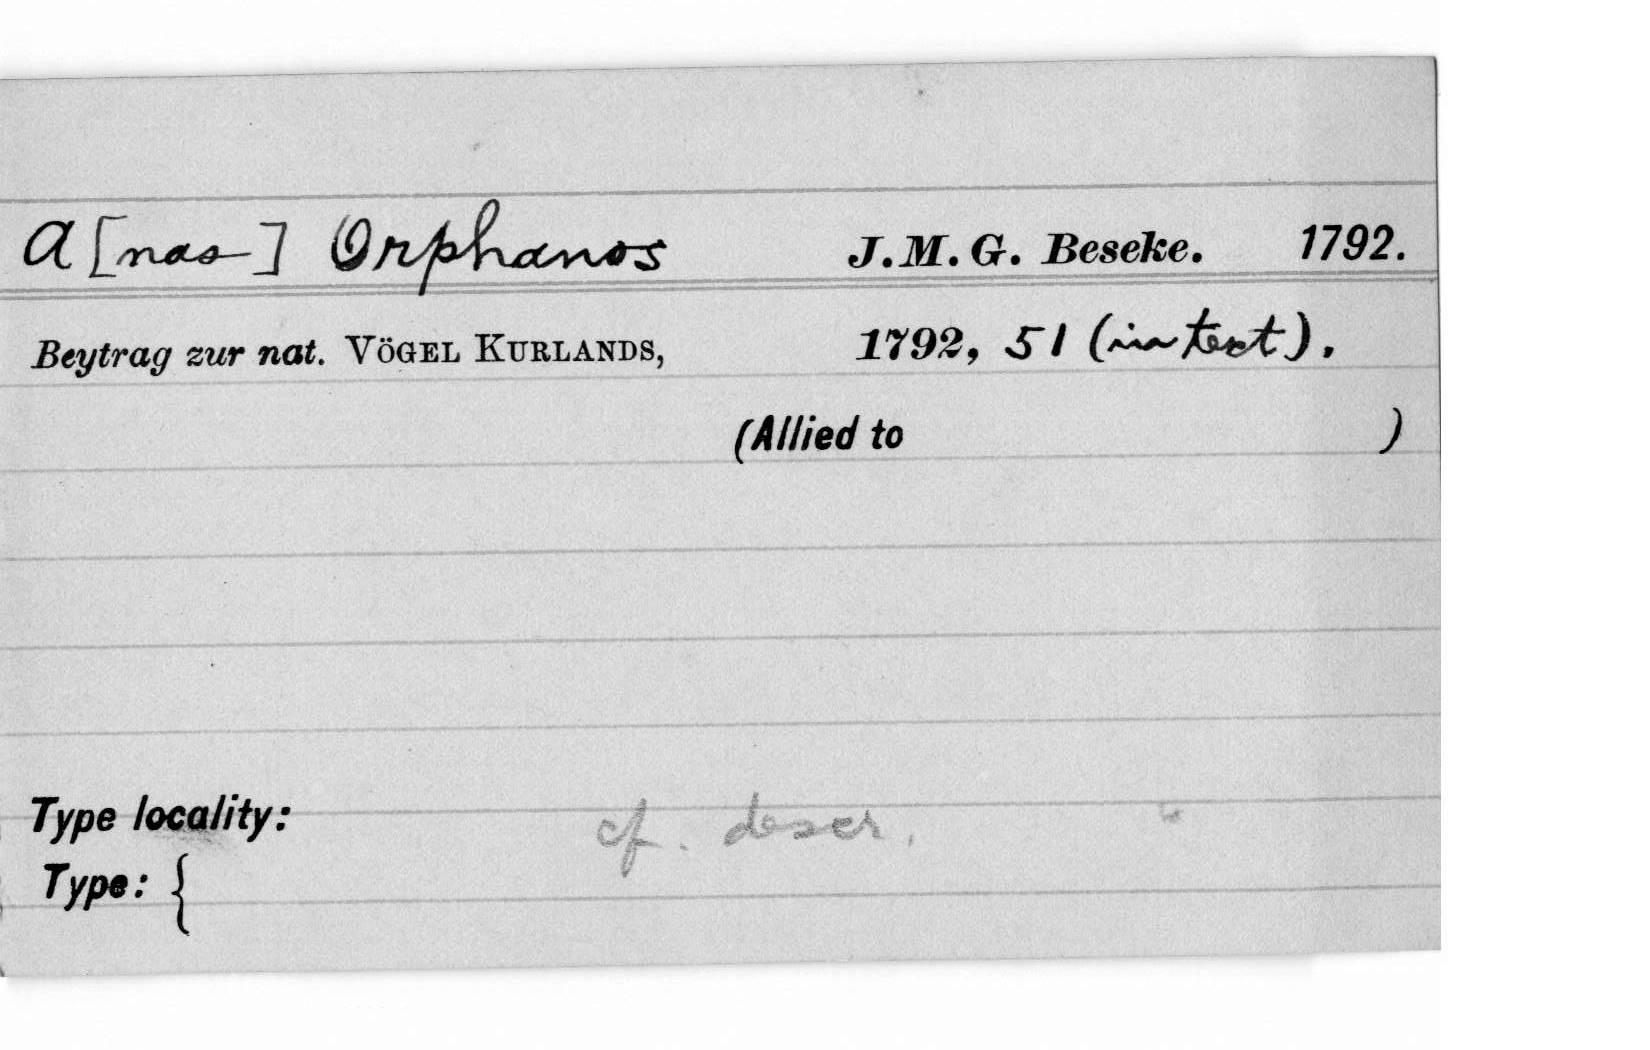 A[nas] Orphanos J. M. G. Beseke. 1792.
Beytrag zur nat. VÖGEL KURLANDS, 1792, 51 (in text).
(Allied to )
Type locality: cf. descr.
Type: {